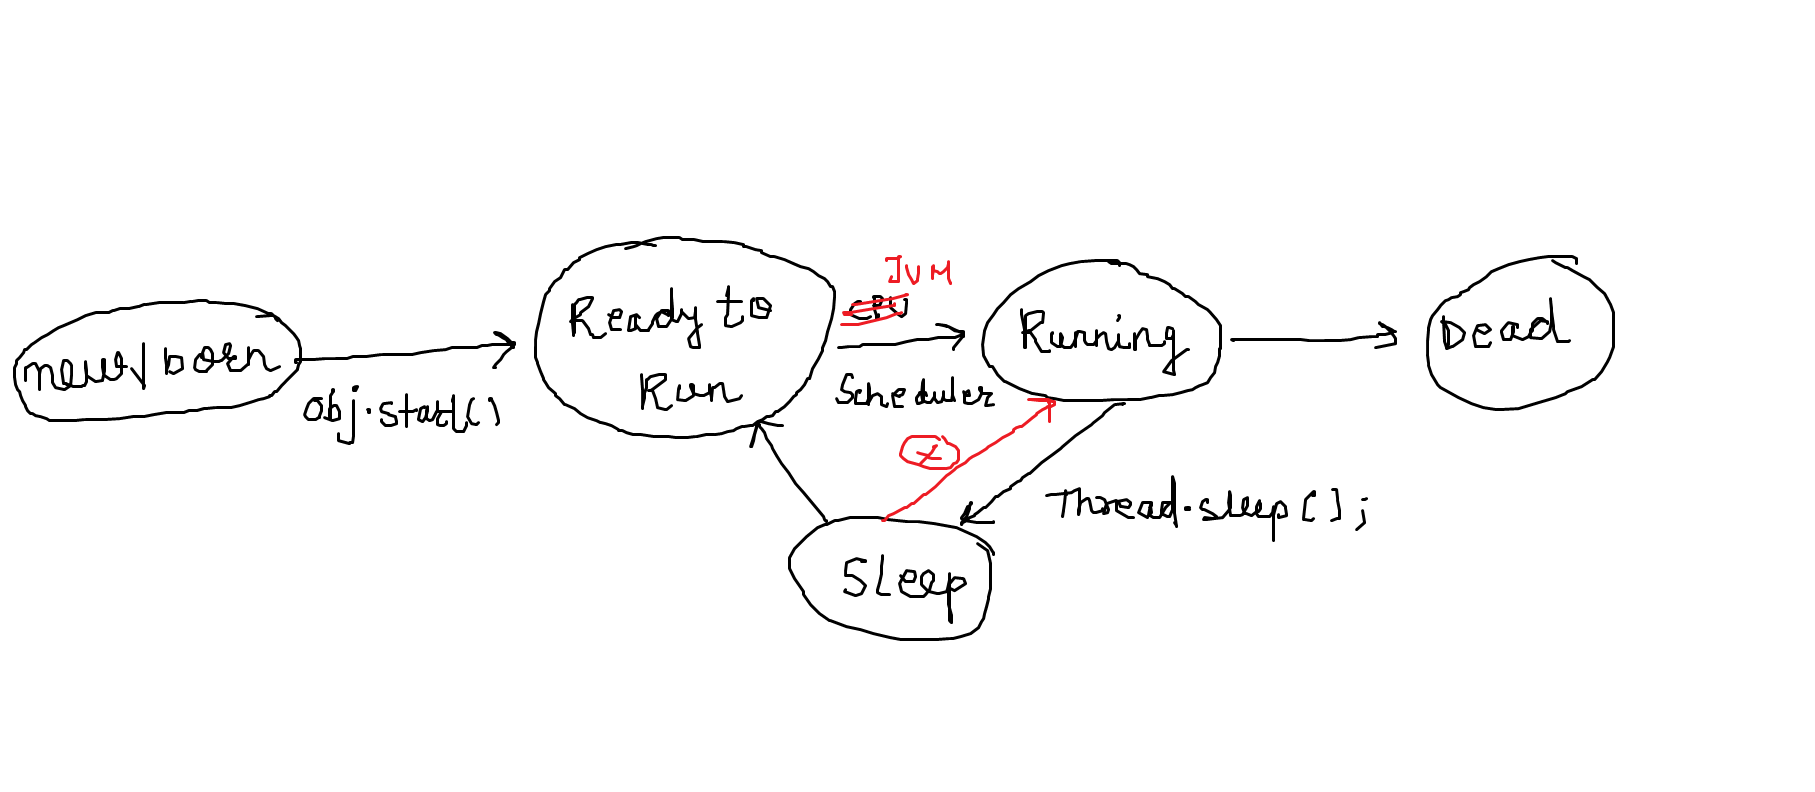 new/born
obj.start()
Ready to
Run
JVM
CPU
Scheduler
Running
Dead
x
Thread.sleep();
Sleep